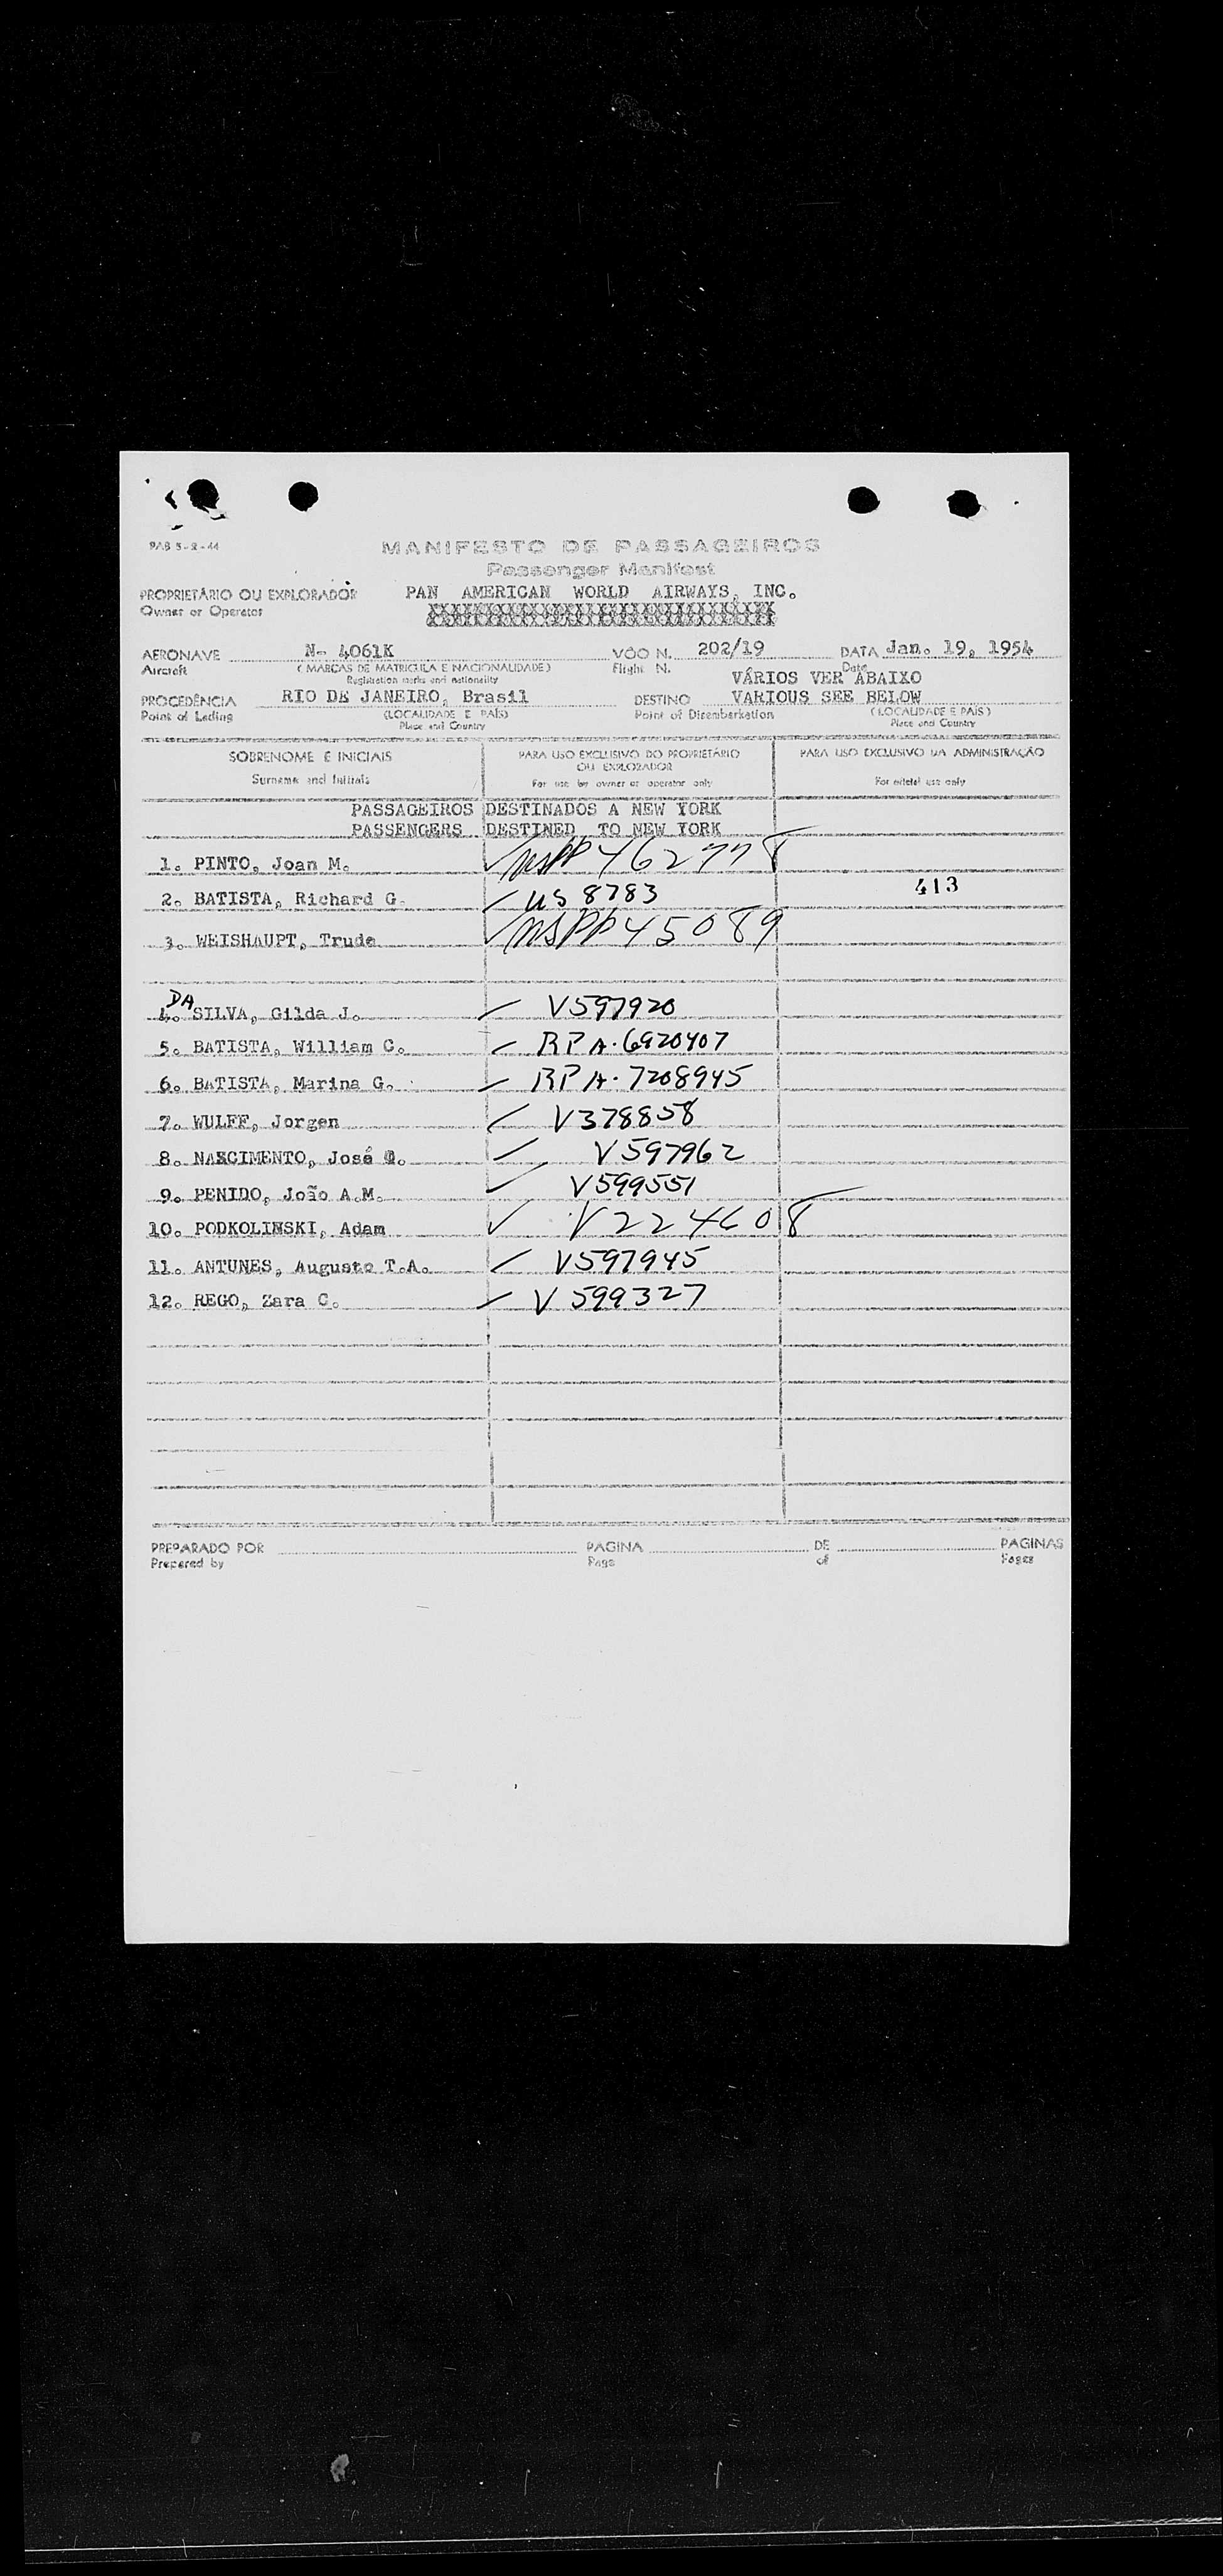 PAB 5-2-44
MANIFESTO DE PASSAGEIROS
Passenger Manifest
PROPRIETÁRIO OU EXPLORADOR PAN AMERICAN WORLD AIRWAYS, INC.
Owner or Operator
AERONAVE N- 4061K VÔO N. 202/19 DATA Jan. 19, 1954
Aircraft (MARCAS DE MATRICULA E NACIONALIDADE) Flight N. Date
Registration marks and nationality VÁRIOS VER ABAIXO
PROCEDÊNCIA RIO DE JANEIRO, Brasil DESTINO VARIOUS SEE BELOW
Point of Lading (LOCALIDADE E PAÍS) Point of Disembarkation (LOCALIDADE E PAÍS)
Place and Country Place and Country
SOBRENOME E INICIAIS PARA USO EXCLUSIVO DO PROPRIETÁRIO PARA USO EXCLUSIVO DA ADMINISTRAÇÃO
OU EXPLORADOR
Surname and Initials For use by owner or operator only For official use only
PASSAGEIROS DESTINADOS A NEW YORK
PASSENGERS DESTINED TO NEW YORK
1. PINTO, Joan M.
2. BATISTA, Richard G. US 8783 413
3. WEISHAUPT, Trude
DA
4. SILVA, Gilda J. V597920
5. BATISTA, William C. RPA·6920407
6. BATISTA, Marina G. RPA·7208945
7. WULFF, Jorgen V378858
8. NASCIMENTO, José V597962
9. PENIDO, João A.M. V599551
10. PODKOLINSKI, Adam V224608
11. ANTUNES, Augusto T.A. V597945
12. REGO, Zara C. V599327
PREPARADO POR PAGINA DE PAGINAS
Prepared by Page of Pages